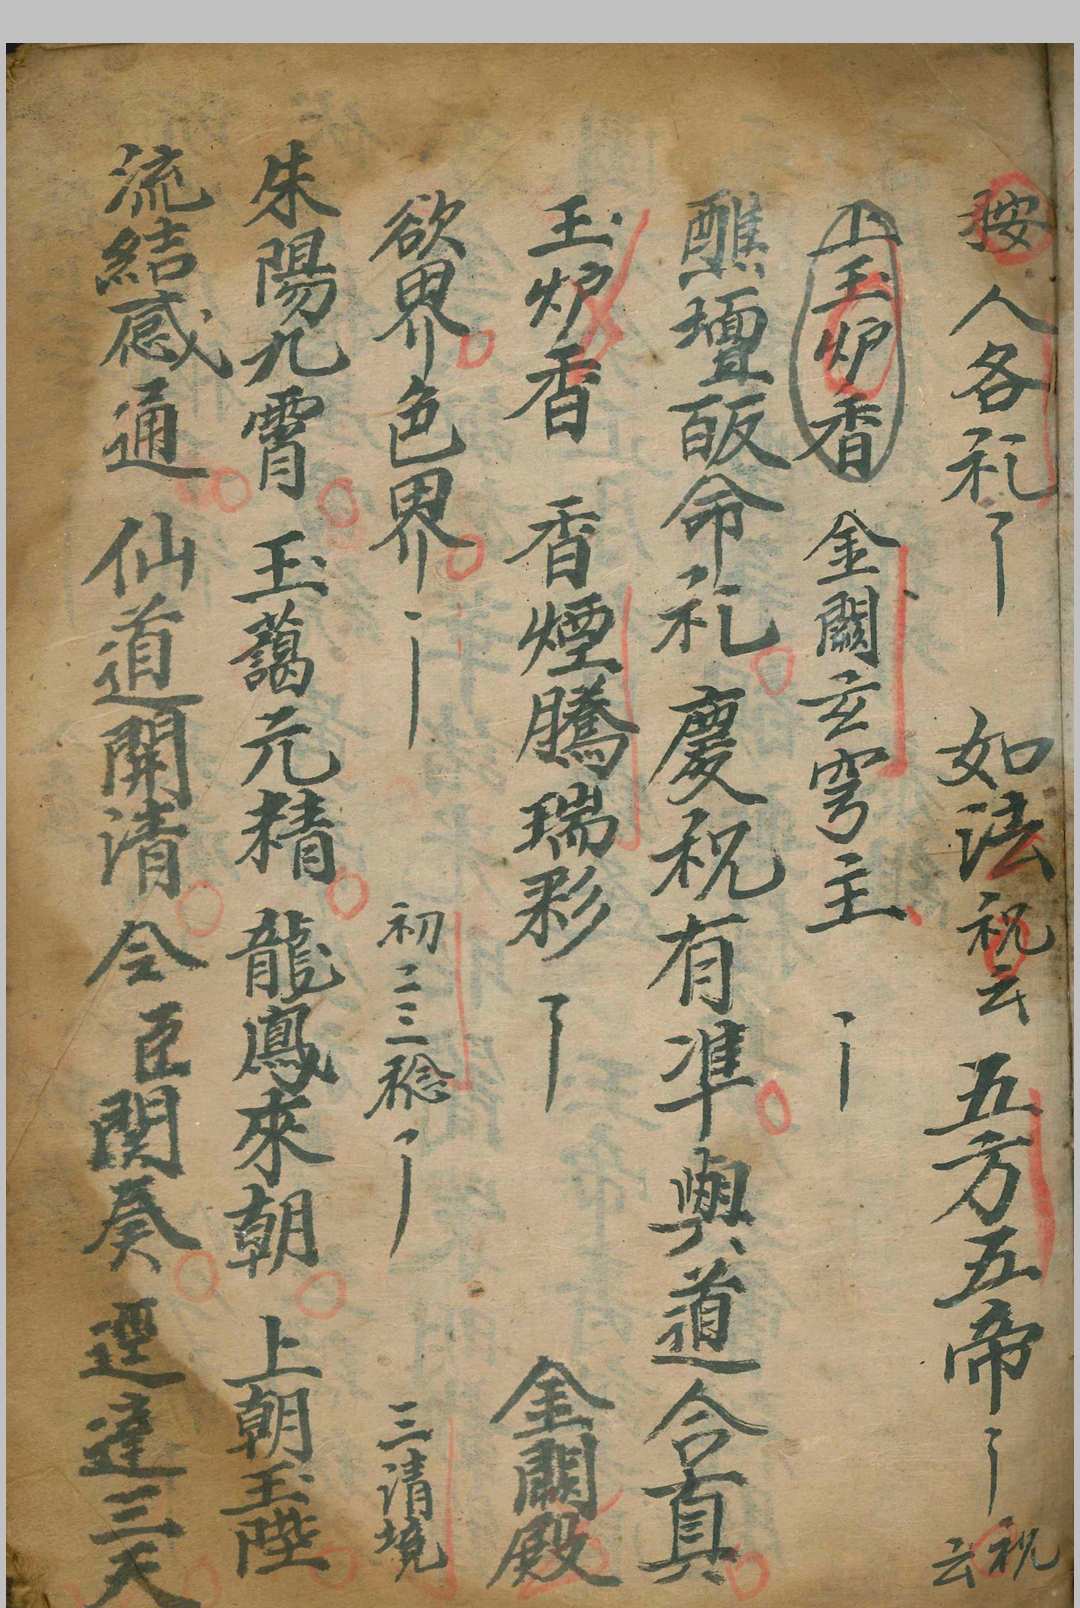 按人各礼 如法祝云 五方五帝 祝云
玉炉香 金闕玄穹主
醮壇皈命礼 慶祝有準 與道合真
玉炉香 香煙騰瑞彩 金闕殿
欲界 色界 初二三稔 三清境
朱陽九霄 玉藹元精 龍鳳來朝 上朝玉陛
流結感通 仙道開清 令臣関奏 逕達三天